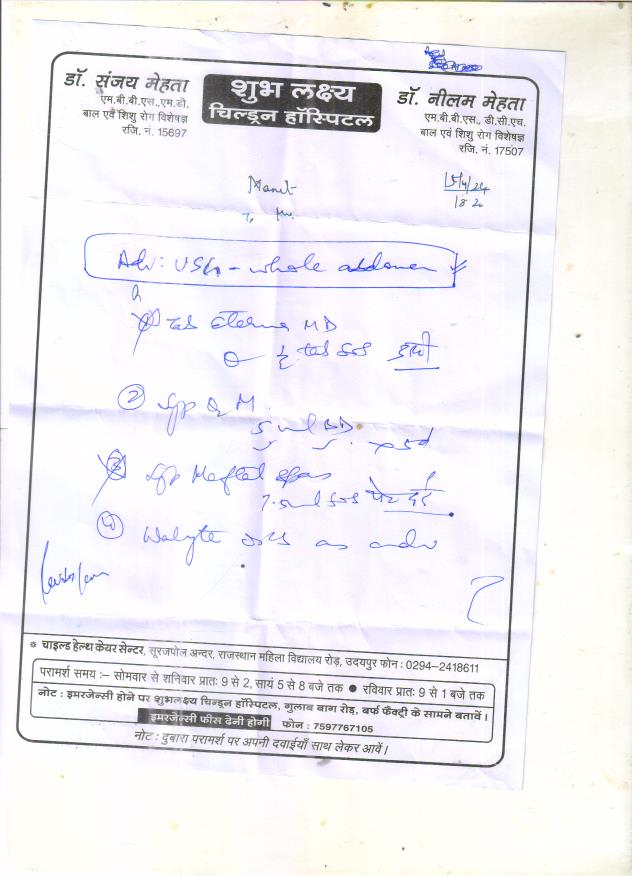 शुभ लक्ष्य
चिल्ड्रन हॉस्पिटल
डॉ. संजय मेहता
एम.बी.बी.एस.,एम.डी.
बाल एवं शिशु रोग विशेषज्ञ
रजि. नं. 15697
डॉ. नीलम मेहता
एम.बी.बी.एस., डी.सी.एच.
बाल एवं शिशु रोग विशेषज्ञ
रजि. नं. 17507
15/4/24
Adv: USG - whole abdomen
① Tab MD
½ tab SOS
② Syp
5 ml BD
x 5d
③ Syp Meftal Spas
7.5ml SOS पेट दर्द
④ Walyte ORS as adv
* चाइल्ड हेल्थ केयर सेन्टर, सूरजपोल अन्दर, राजस्थान महिला विद्यालय रोड़, उदयपुर फोन : 0294-2418611
परामर्श समय :– सोमवार से शनिवार प्रातः 9 से 2, सायं 5 से 8 बजे तक ● रविवार प्रातः 9 से 1 बजे तक
नोट : इमरजेन्सी होने पर शुभलक्ष्य चिल्ड्रन हॉस्पिटल, गुलाब बाग रोड़, बर्फ फैक्ट्री के सामने बतावें।
इमरजेन्सी फीस देनी होगी फोन : 7597767105
नोट : दुबारा परामर्श पर अपनी दवाईयाँ साथ लेकर आवें।